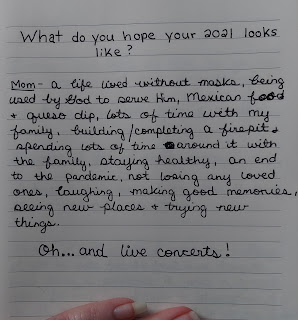 What do you hope your 2021 looks
like?
Mom - a life lived without masks, being
used by God to serve Him, Mexican food
+ queso dip, lots of time with my
family, building/completing a firepit &
spending lots of time around it with
the family, staying healthy, an end
to the pandemic, not losing any loved
ones, laughing, making good memories,
seeing new places + trying new
things.
Oh...and live concerts!